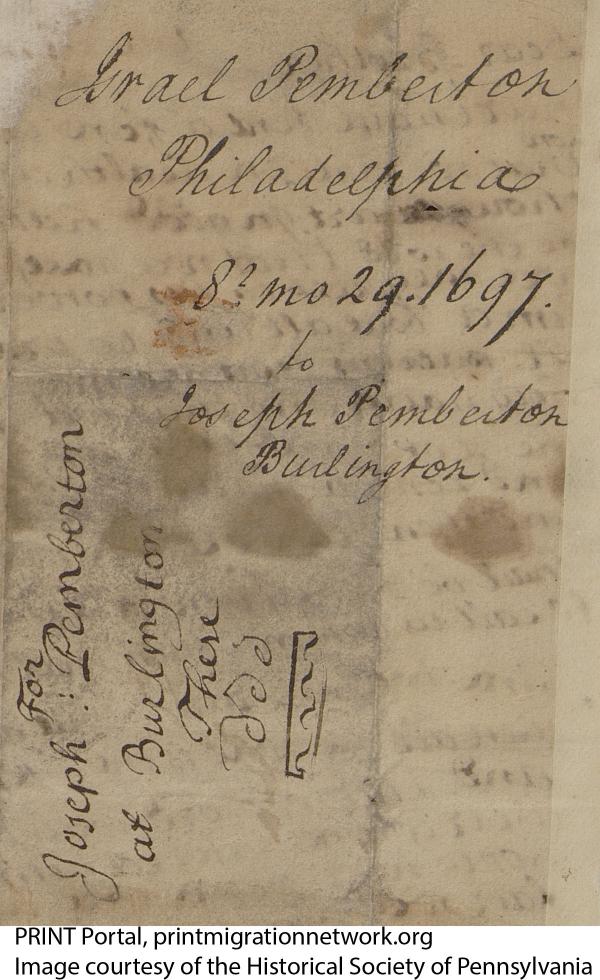 Israel Pemberton
Philadelphia
8? mo 29. 1697.
to
Joseph Pemberton
Burlington.
For
Joseph : Pemberton
at Burlington
These
ddd
PRINT Portal, printmigrationnetwork.org
Image courtesy of the Historical Society of Pennsylvania